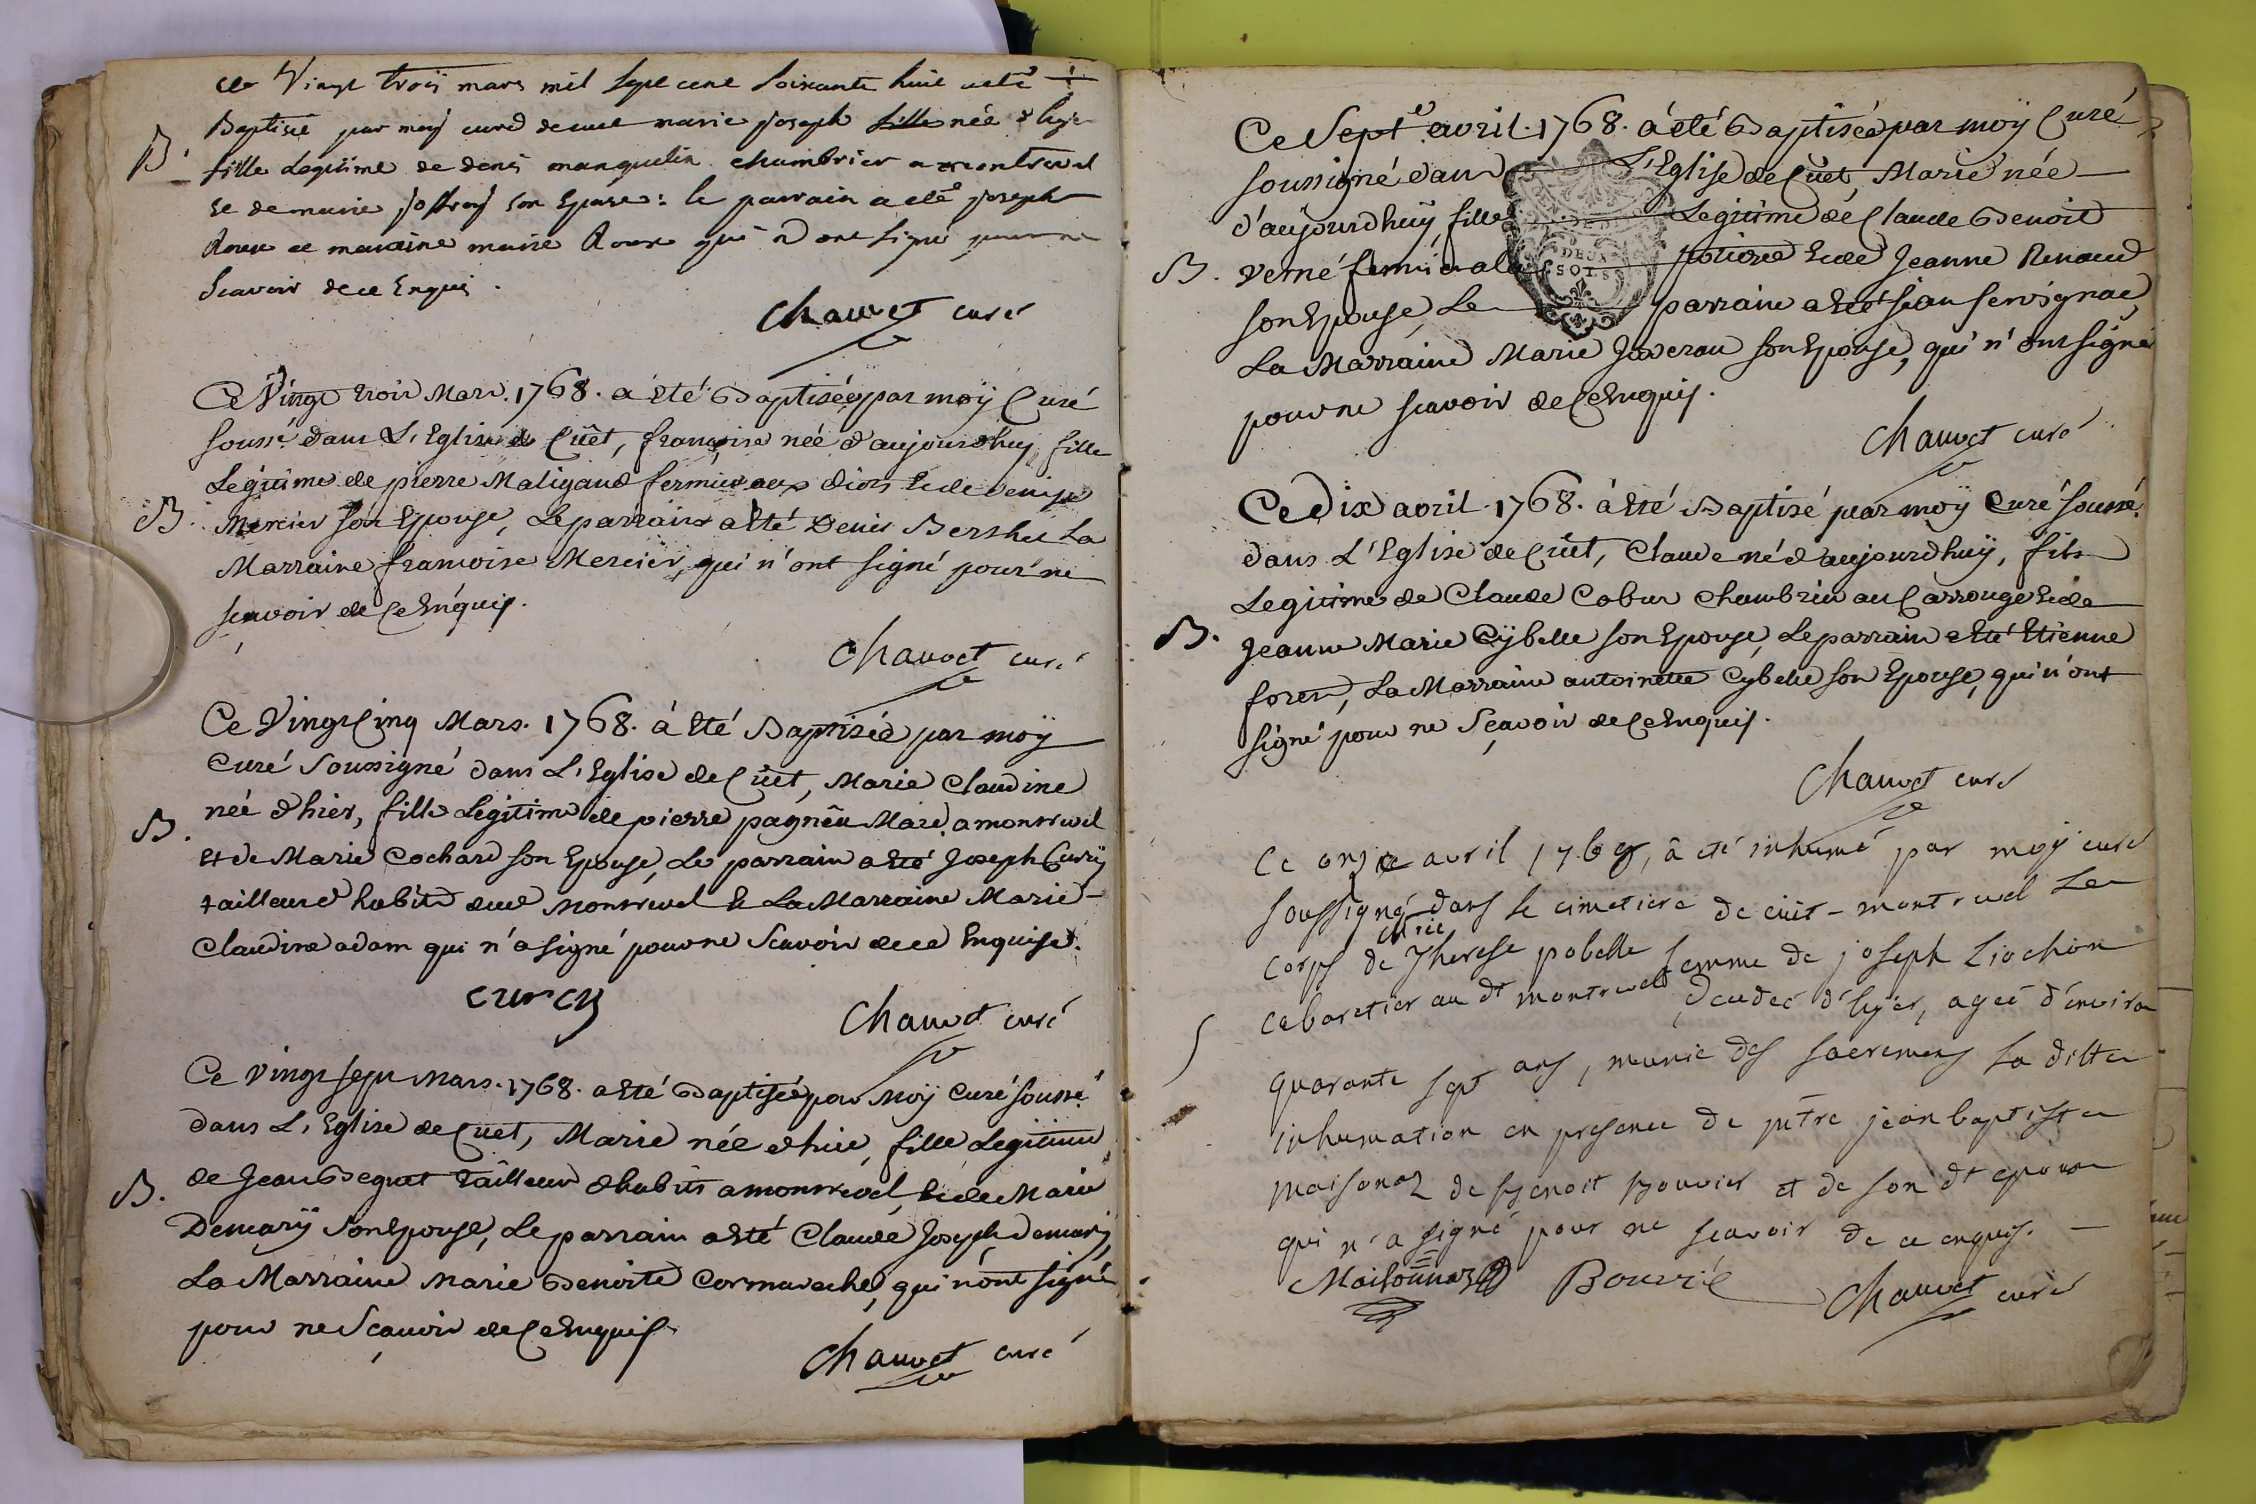 Ce Vingt trois mars mil sept cent soixante huit a été
B.
Baptisée par moy curé de cuet marie joseph fille née d'hyer
fille Legitime de denis manguelin chambrier a montrevel
et de marie joffray son Epouse : le parrain a été joseph
Roux et maraine marie Roux qui n'ont signé pour ne
scavoir de ce Enquis.
Chauvet curé
Ce Vingt trois Mars. 1768. a été Baptisée par moÿ Curé
soussé. dans L'Eglise de Cuët, françoise née d'aujourd'huy, fille
Legitime de pierre Maligaud fermier aux diots Et de denise
B.
Mercier son Epouse, Le parrain a Eté Denis Berthet La
Marraine françoise Mercier, qui n'ont signé pour ne
scavoir de Ce Enquis.
Chauvet curé
Ce Vingt Cinq Mars. 1768. à Eté Baptisée par moÿ
Curé soussigné dans L'Eglise de Cuët, Marie Claudine
née d'hier, fille Legitime de pierre pagneu Mard. a montrevel
B.
Et de Marie Cochard son Epouse, Le parrain a Eté Joseph Curcÿ
tailleur d'habits aud. Montrevel & La Marraine Marie
Claudine adam qui n'a signé pour ne Scavoir de ce Enquise.
curcy
Chauvet curé
Ce vingt sept Mars. 1768. a Eté Baptisée par Moÿ Curé soussé.
dans L'Eglise de Cuet, Marie née d'hier, fille Legitime
de Jean Beguet tailleur d'habits a montrevel, Et de Marie
B.
Demarÿ son Epouse, Le parrain a Eté Claude Joseph Demarÿ,
La Marraine Marie Benoite Cormareche, qui n'ont signé
pour ne Sçavoir de Ce Enquis
Chauvet curé
Ce Sept avril. 1768. a été Baptisée par moÿ Curé
soussigné dans L'Eglise de Cuët, Marie née
d'aujourdhuÿ, fille Legitime de Claude Benoit
GEN DE
DEUX
SOLS
B.
verné fermier a la potiere Et de Jeanne Renaud
son Epouse, Le parrain a Eté jean servignac,
La Marraine Marie Joverau son Epouse, qui n'ont signé
pour ne scavoir de Ce Enquis.
Chauvet curé
Ce Dix avril. 1768. à Eté Baptisé par moÿ Curé soussé.
dans L'Eglise de Cuët, Claude né d'aujourdhuÿ, fils
Legitime de Claude Cobur chambrier au Carrouge Et de
B.
Jeanne Marie Cÿbelle son Epouse, Le parrain a Eté Etienne
foret, La Marraine antoinette Cybelle son Epouse, qui n'ont
signé pour ne Sçavoir de Ce Enquis.
Chauvet curé
Ce onze avril 1768, â été inhumé par moÿ curé
soussigné dans le cimetiere de cüet-montrevel Le
Corps de Therese pobelle femme de joseph Liochon
cabaretier au dt montrevel décedée d'hÿer, agée d'environ
S
quarante sept ans, munie des sacremens la ditte
inhumation en presence de mêtre jean baptiste
maisonaz de benoit bouvier et de son dt epoux
qui n'a signé pour ne scavoir de ce enquis.
Maisonnaz Bouvié Chauvet curé